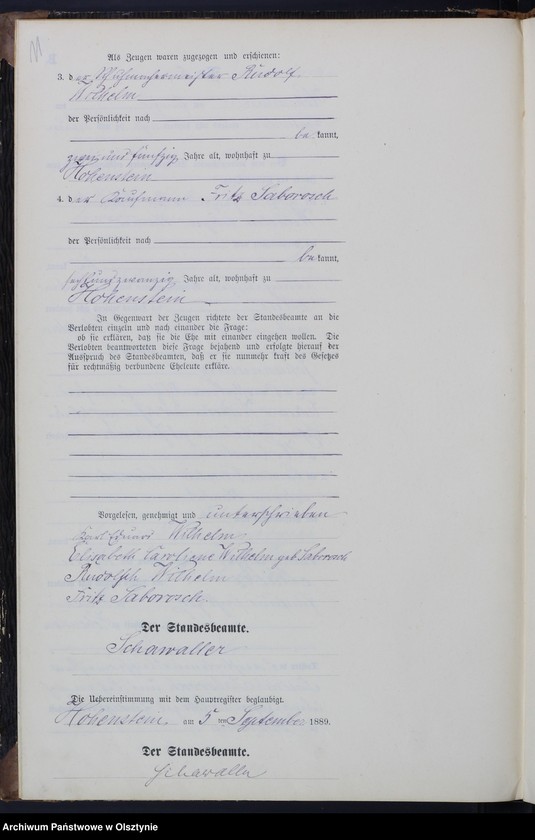 Als Zeugen waren zugezogen und erschienen:
3. der Schuhmachermeister Rudolf
Wilhelm
der Persönlichkeit nach
bekannt,
zweiundfünfzig Jahre alt, wohnhaft zu
Hohenstein
4. der Kaufmann Fritz Saborosch
der Persönlichkeit nach
bekannt,
sechsundzwanzig Jahre alt, wohnhaft zu
Hohenstein
In Gegenwart der Zeugen richtete der Standesbeamte an die
Verlobten einzeln und nach einander die Frage:
ob sie erklären, daß sie die Ehe mit einander eingehen wollen. Die
Verlobten beantworteten diese Frage bejahend und erfolgte hierauf der
Ausspruch des Standesbeamten, daß er sie nunmehr kraft des Gesetzes
für rechtmäßig verbundene Eheleute erkläre.
Vorgelesen, genehmigt und unterschrieben
Karl Eduard Wilhelm
Elisabeth Caroline Wilhelm geb. Saborosch
Rudolph Wilhelm
Fritz Saborosch
Der Standesbeamte.
Schawaller
Die Uebereinstimmung mit dem Hauptregister beglaubigt.
Hohenstein am 5 ten September 1889.
Der Standesbeamte.
Schawaller
Archiwum Państwowe w Olsztynie